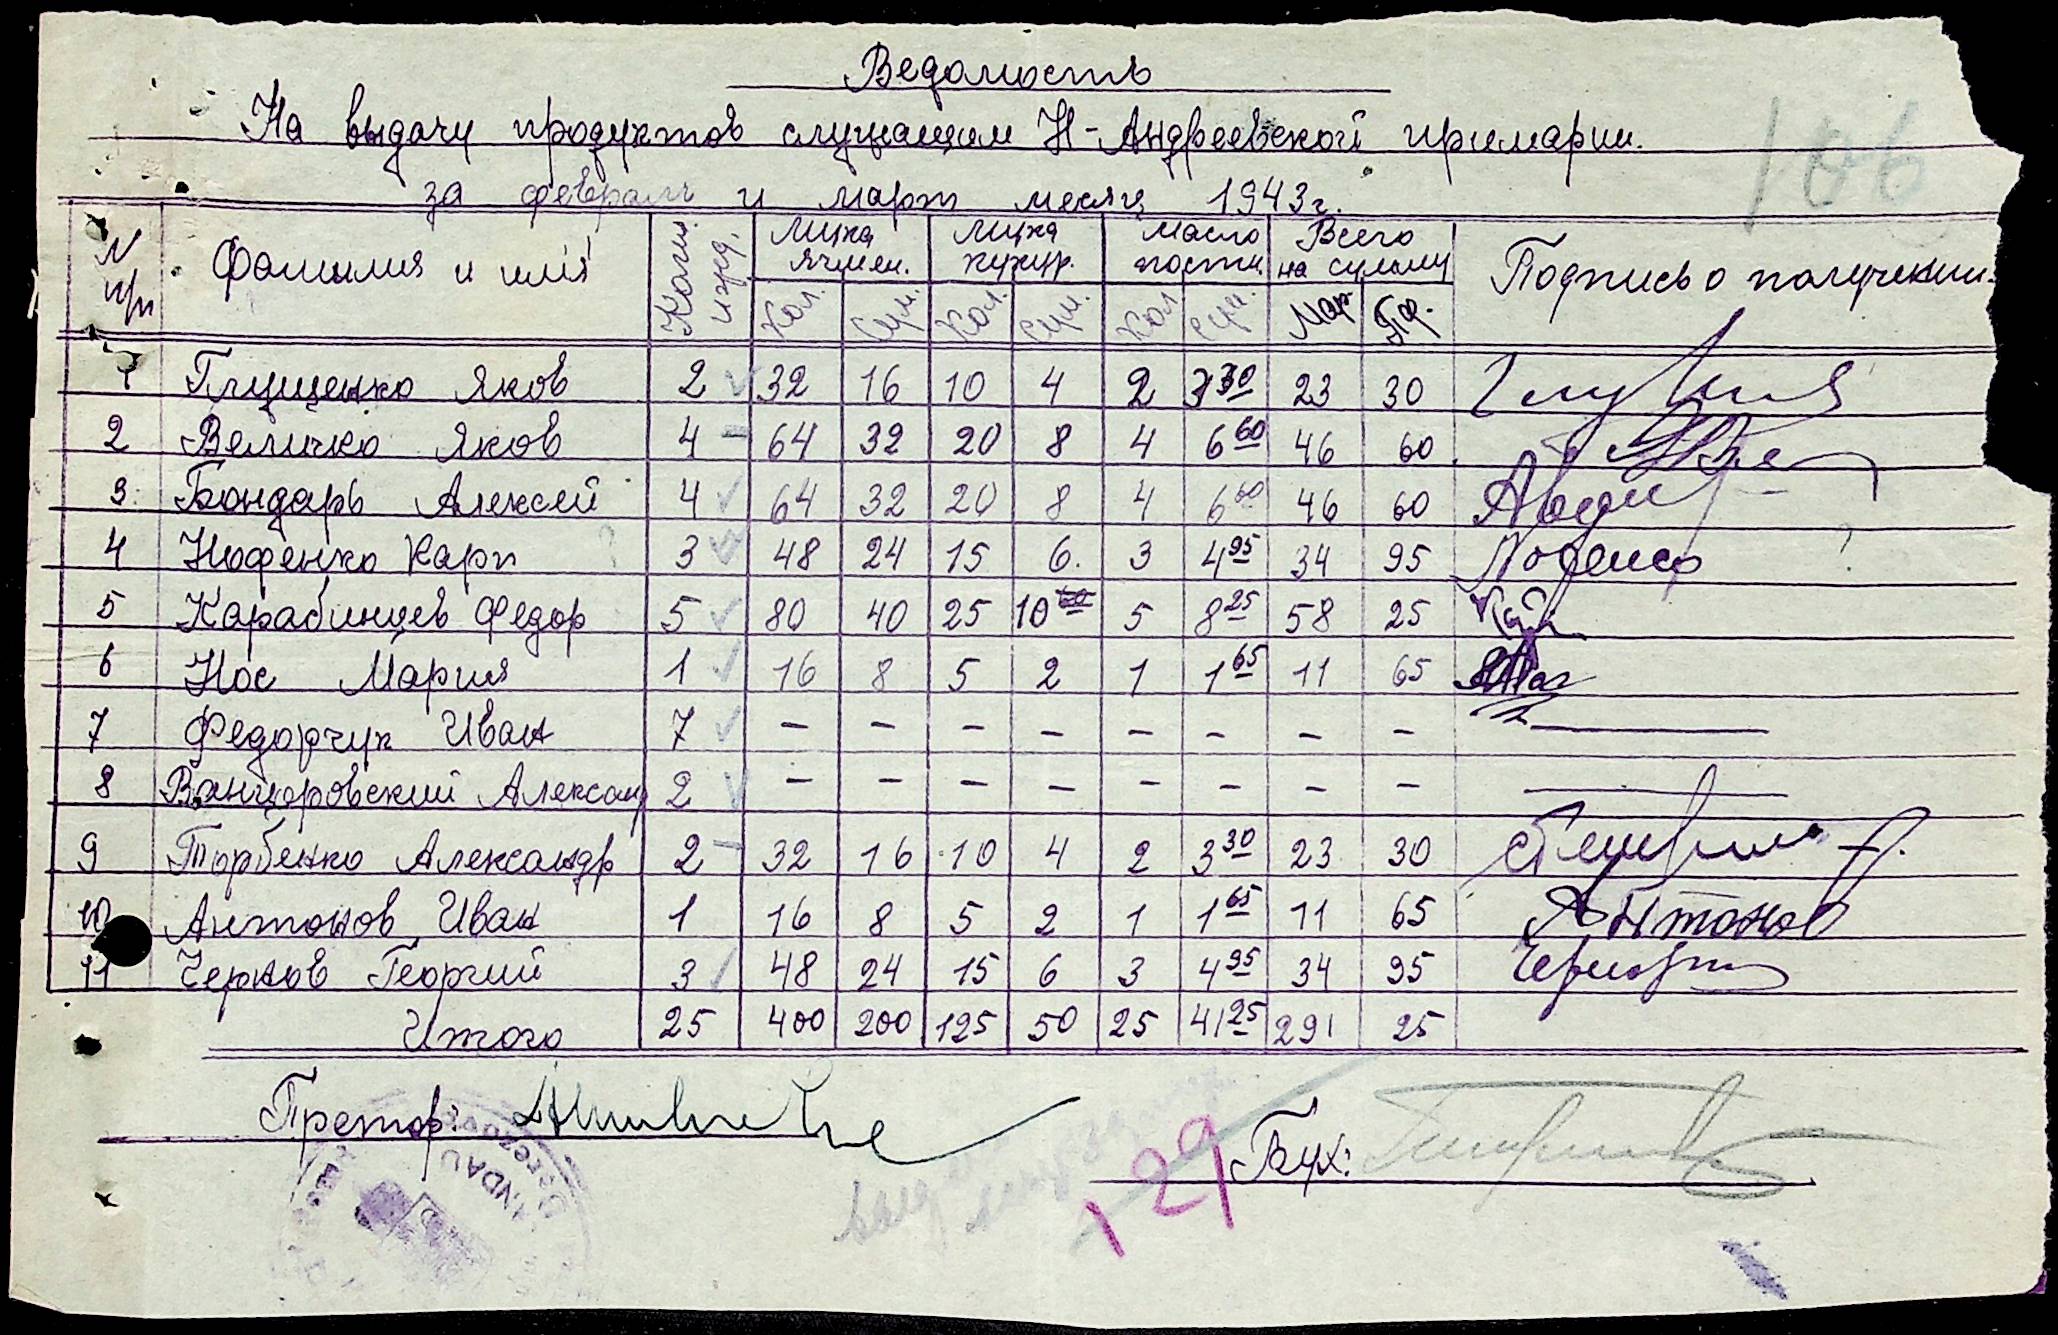 Ведомость
На выдачу продуктов служащим Н-Андреевской примарии.
за февраль и март месяц 1943 г.
N п/п Фамилия и имя Колич. ижд. мука ячмен. мука кукур. масло постн. Всего на сумму Подпись о получении
Кол. Сум. Кол. Сум. Кол. Сум. Мар. Пф.
1 Глущенко Яков 2 32 16 10 4 2 3 30 23 30
2 Величко Яков 4 64 32 20 8 4 6 60 46 60
3 Бондарь Алексей 4 64 32 20 8 4 6 60 46 60
4 Нофенко Карп 3 48 24 15 6. 3 4 95 34 95
5 Карабинцев Федор 5 80 40 25 10 5 8 25 58 25
6 Нос Мария 1 16 8 5 2 1 1 65 11 65
7 Федорчук Иван 7 – – – – – – – –
8 Ванцеровский Александ 2 – – – – – – – –
9 Торбенко Александр 2 32 16 10 4 2 3 30 23 30
10 Антонов Иван 1 16 8 5 2 1 1 65 11 65 Антонов
11 Чернов Георгий 3 48 24 15 6 3 4 95 34 95
Итого 25 400 200 125 50 25 41 25 291 25
Претор:
Бух:
129
106